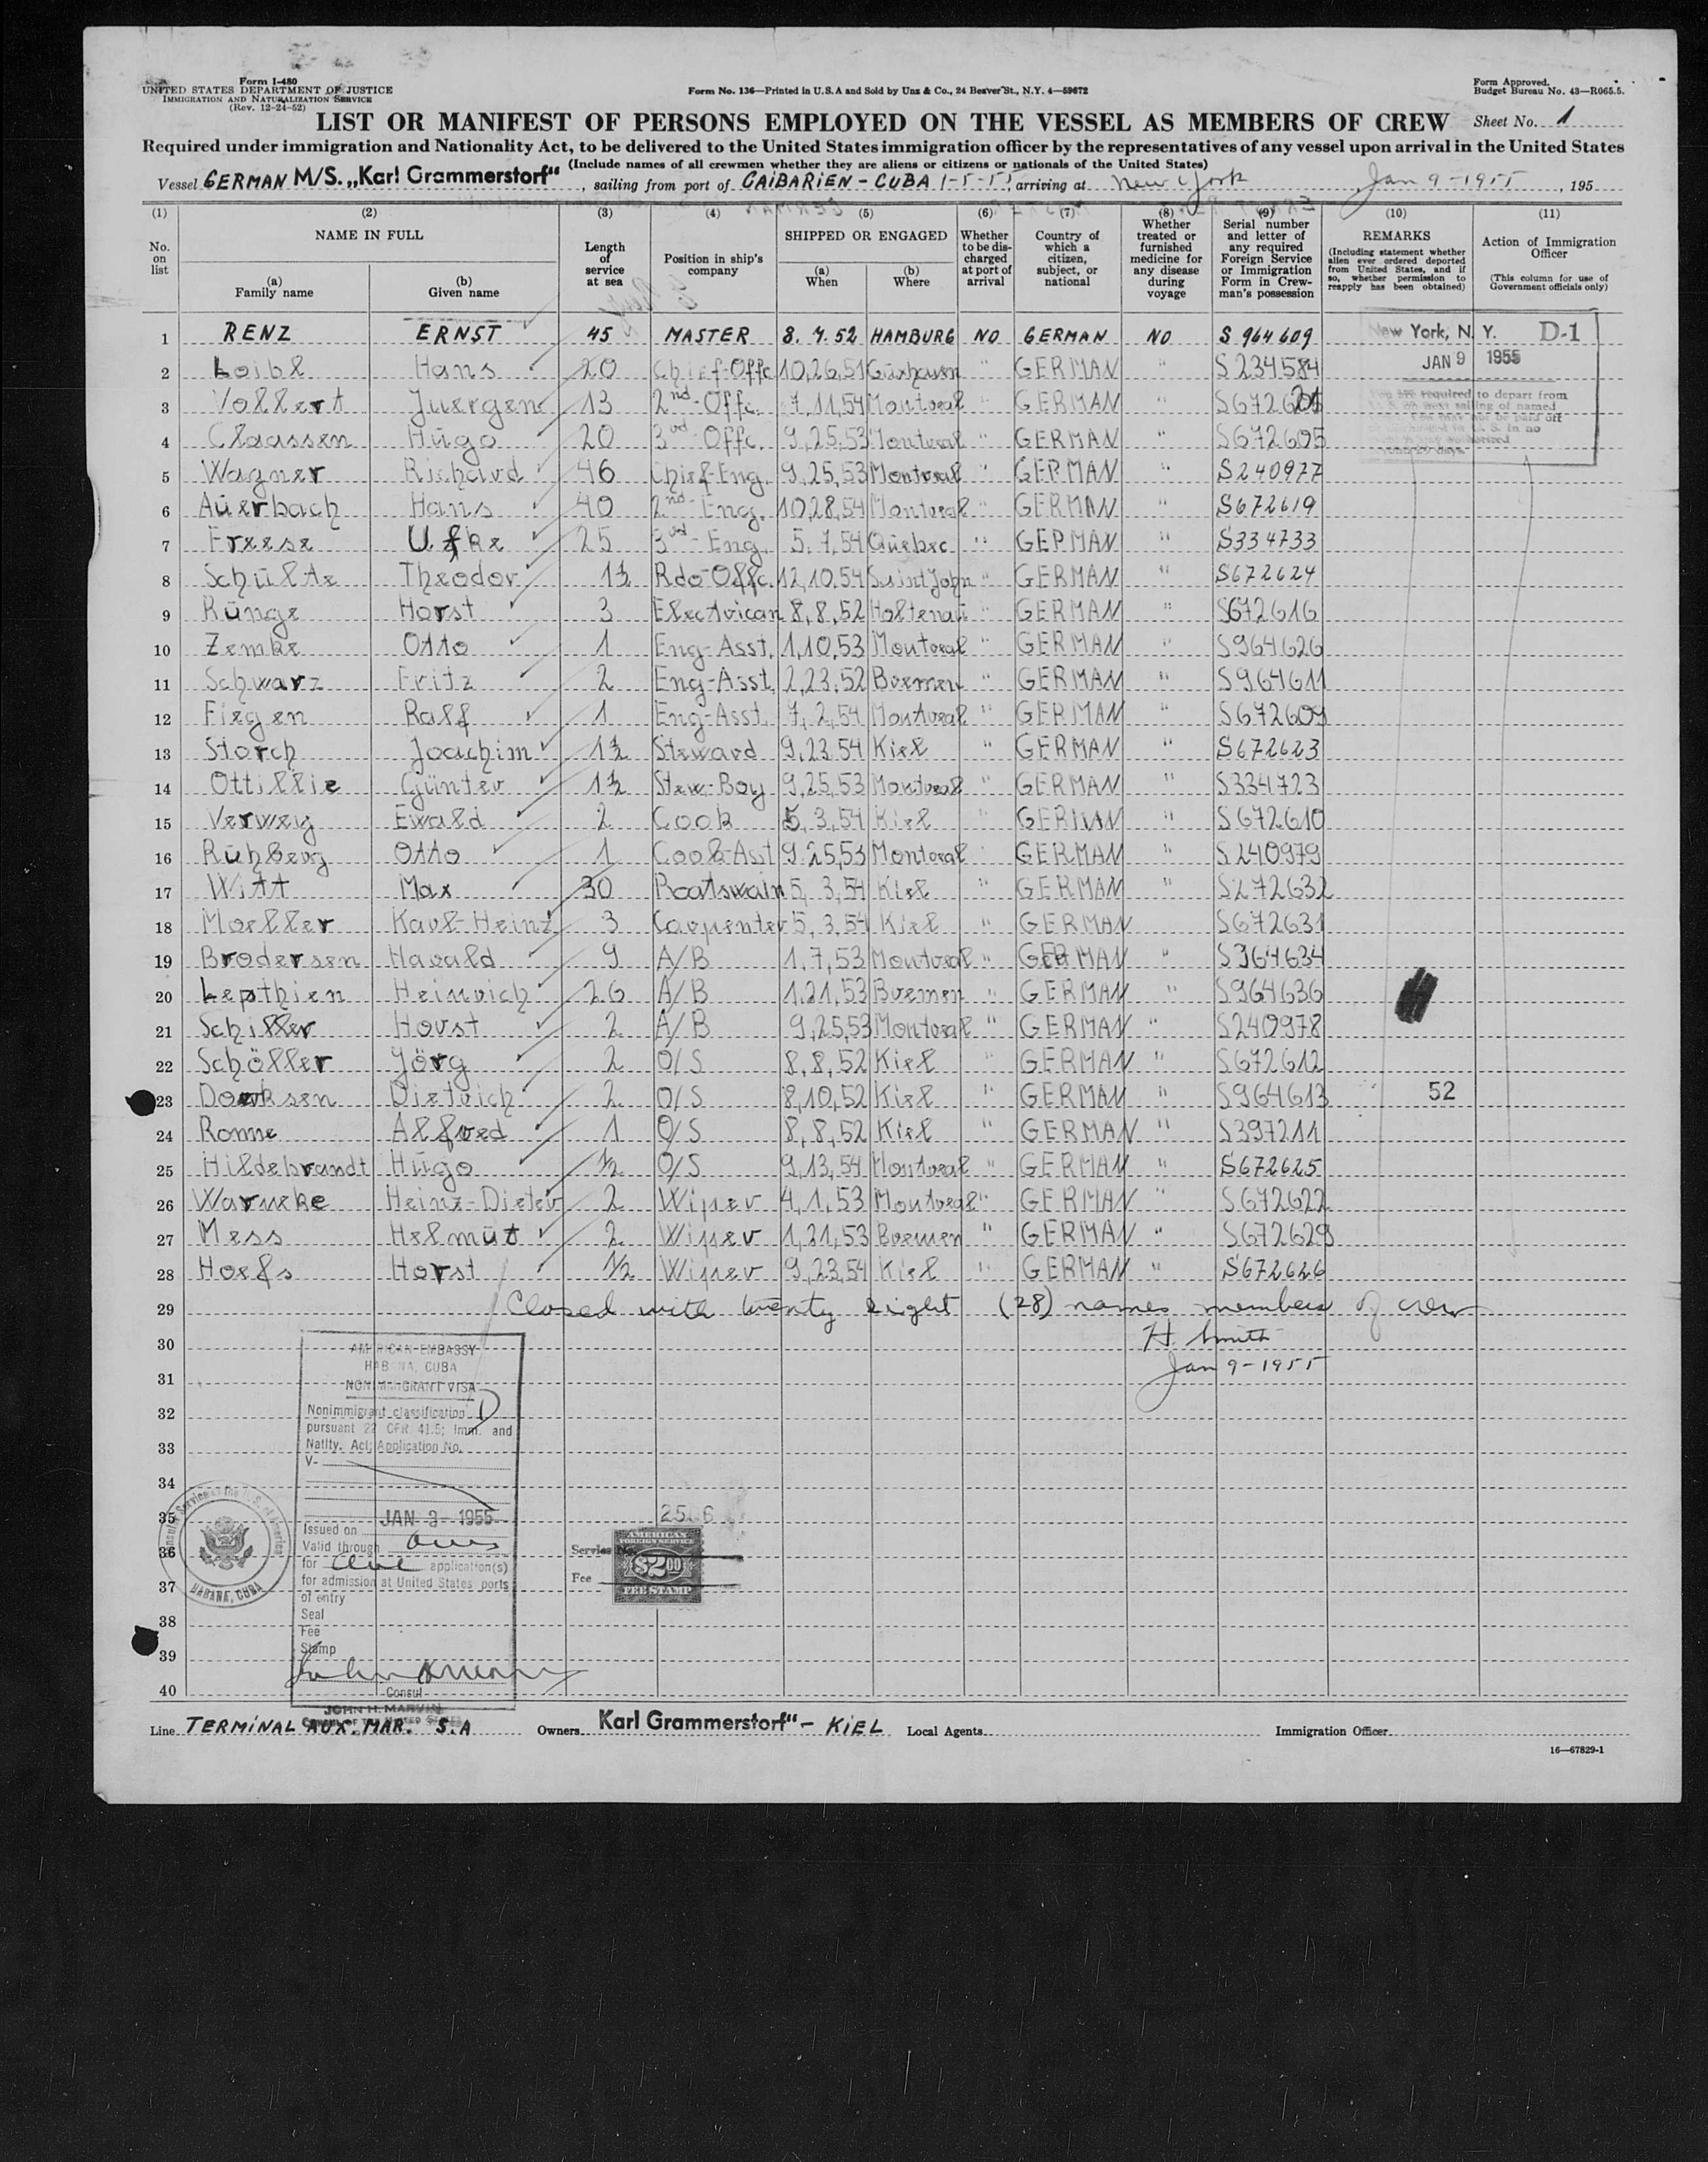 Form I-480
UNITED STATES DEPARTMENT OF JUSTICE
IMMIGRATION AND NATURALIZATION SERVICE
(Rev. 12-24-52)
Form No. 136—Printed in U.S.A and Sold by Unz & Co., 24 Beaver St., N.Y. 4—59672
Form Approved.
Budget Bureau No. 43—R065.5.
LIST OR MANIFEST OF PERSONS EMPLOYED ON THE VESSEL AS MEMBERS OF CREW Sheet No. 1
Required under immigration and Nationality Act, to be delivered to the United States immigration officer by the representatives of any vessel upon arrival in the United States
(Include names of all crewmen whether they are aliens or citizens or nationals of the United States)
Vessel GERMAN M/S. „Karl Grammerstorf“, sailing from port of CAIBARIEN - CUBA 1-5-5, arriving at New York, Jan 9-1955, 195
(1) (2) (3) (4) (5) (6) (7) (8) (9) (10) (11)
No. on list
NAME IN FULL
(a) Family name
(b) Given name
Length of service at sea
Position in ship's company
SHIPPED OR ENGAGED
(a) When
(b) Where
Whether to be discharged at port of arrival
Country of which a citizen, subject, or national
Whether treated or furnished medicine for any disease during voyage
Serial number and letter of any required Foreign Service or Immigration Form in Crewman's possession
REMARKS
(Including statement whether alien ever ordered deported from United States, and if so, whether permission to reapply has been obtained)
Action of Immigration Officer
(This column for use of Government officials only)
1 RENZ ERNST 45 MASTER 8.7.52 HAMBURG NO GERMAN NO S 964609
New York, N. Y. D-1
JAN 9 1955
2 Loibl Hans 20 Chief-Offc 10,26,51 Cuxhaven " GERMAN " S234584
3 Vollert Juergen 13 2nd-Offc. 7,11,54 Montreal " GERMAN "
required to depart from
4 Claassen Hugo 20 3rd Offc. 9,25,53 Montreal " GERMAN " S672605
5 Wagner Richard 46 Chief-Eng. 9,25,53 Montreal " GERMAN " S240977
6 Auerbach Hans 40 2nd Eng. 10,28,54 Montreal " GERMAN " S672619
7 Freese Ufke 25 3rd Eng. 5.7,54 Quebec " GERMAN " S334733
8 Schulte Theodor 1½ Rdo-Offc. 12,10,54 Saint John " GERMAN " S672624
9 Runge Horst 3 Electrican 8,8,52 Holtenau " GERMAN " S672616
10 Zemke Otto 1 Eng-Asst. 1,10,53 Montreal " GERMAN " S964626
11 Schwarz Fritz 2 Eng-Asst. 2,23,52 Bremen " GERMAN " S964611
12 Fiegen Ralf 1 Eng-Asst. 7,2,54 Montreal " GERMAN " S672609
13 Storch Joachim 1½ Steward 9,23,54 Kiel " GERMAN " S672623
14 Ottillie Günter 1½ Stew-Boy 9,25,53 Montreal " GERMAN " S334723
15 Verwey Ewald 2 Cook 5,3,54 Kiel " GERMAN " S672610
16 Rühberg Otto 1 Cook-Asst 9,25,53 Montreal " GERMAN " S240979
17 Witt Max 30 Boatswain 5,3,54 Kiel " GERMAN " S272632
18 Moeller Karl-Heinz 3 Carpenter 5,3,54 Kiel " GERMAN S672631
19 Brodersen Harald 9 A/B 1,7,53 Montreal " GERMAN " S964634
20 Lepthien Heinrich 26 A/B 1,21,53 Bremen " GERMAN " S964636
21 Schiller Horst 2 A/B 9,25,53 Montreal " GERMAN " S240978
22 Schöller Jörg 2 O/S 8,8,52 Kiel " GERMAN " S672612
23 Dietrich 2 O/S 8,10,52 Kiel " GERMAN " S964613 52
24 Ronne Alfred 1 O/S 8,8,52 Kiel " GERMAN " S397211
25 Hildebrandt Hugo ½ O/S 9,13,54 Montreal " GERMAN " S672625
26 Warneke Heinz-Dieter 2 Wiper 4,1,53 Montreal " GERMAN " S672622
27 Mess Helmut 2 Wiper 1,21,53 Bremen " GERMAN " S672629
28 Hoefs Horst ½ Wiper 9,23,54 Kiel " GERMAN " S672626
29 Closed with twenty eight (28) names members of crew
30 H. Smith
31 Jan 9-1955
32
33
34
35
36
37
38
39
40
AMERICAN EMBASSY
HABANA, CUBA
NONIMMIGRANT VISA
Nonimmigrant classification D
pursuant 22 CFR 41.5; Imm. and
Natlty. Act; Application No.
V-
Issued on JAN 3-1955
Valid through
for one application(s)
for admission at United States ports
of entry
Seal
Fee
Stamp
Consul
JOHN H. MARVIN
Consular Service of the U.S. of America
HABANA, CUBA
Service No. 2506
Fee
AMERICAN
FOREIGN SERVICE
$2.00
FEE STAMP
Line TERMINAL AUX. MAR. S.A Owners Karl Grammerstorf“ - KIEL Local Agents Immigration Officer
16—67829-1